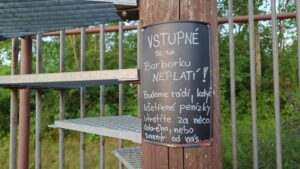 VSTUPNÉ
SE NA
Barborku
NEPLATÍ!
Budeme rádi, když
Ušetřené penízky
utratíte za něco
dobrého, nebo
suvenýr od nás